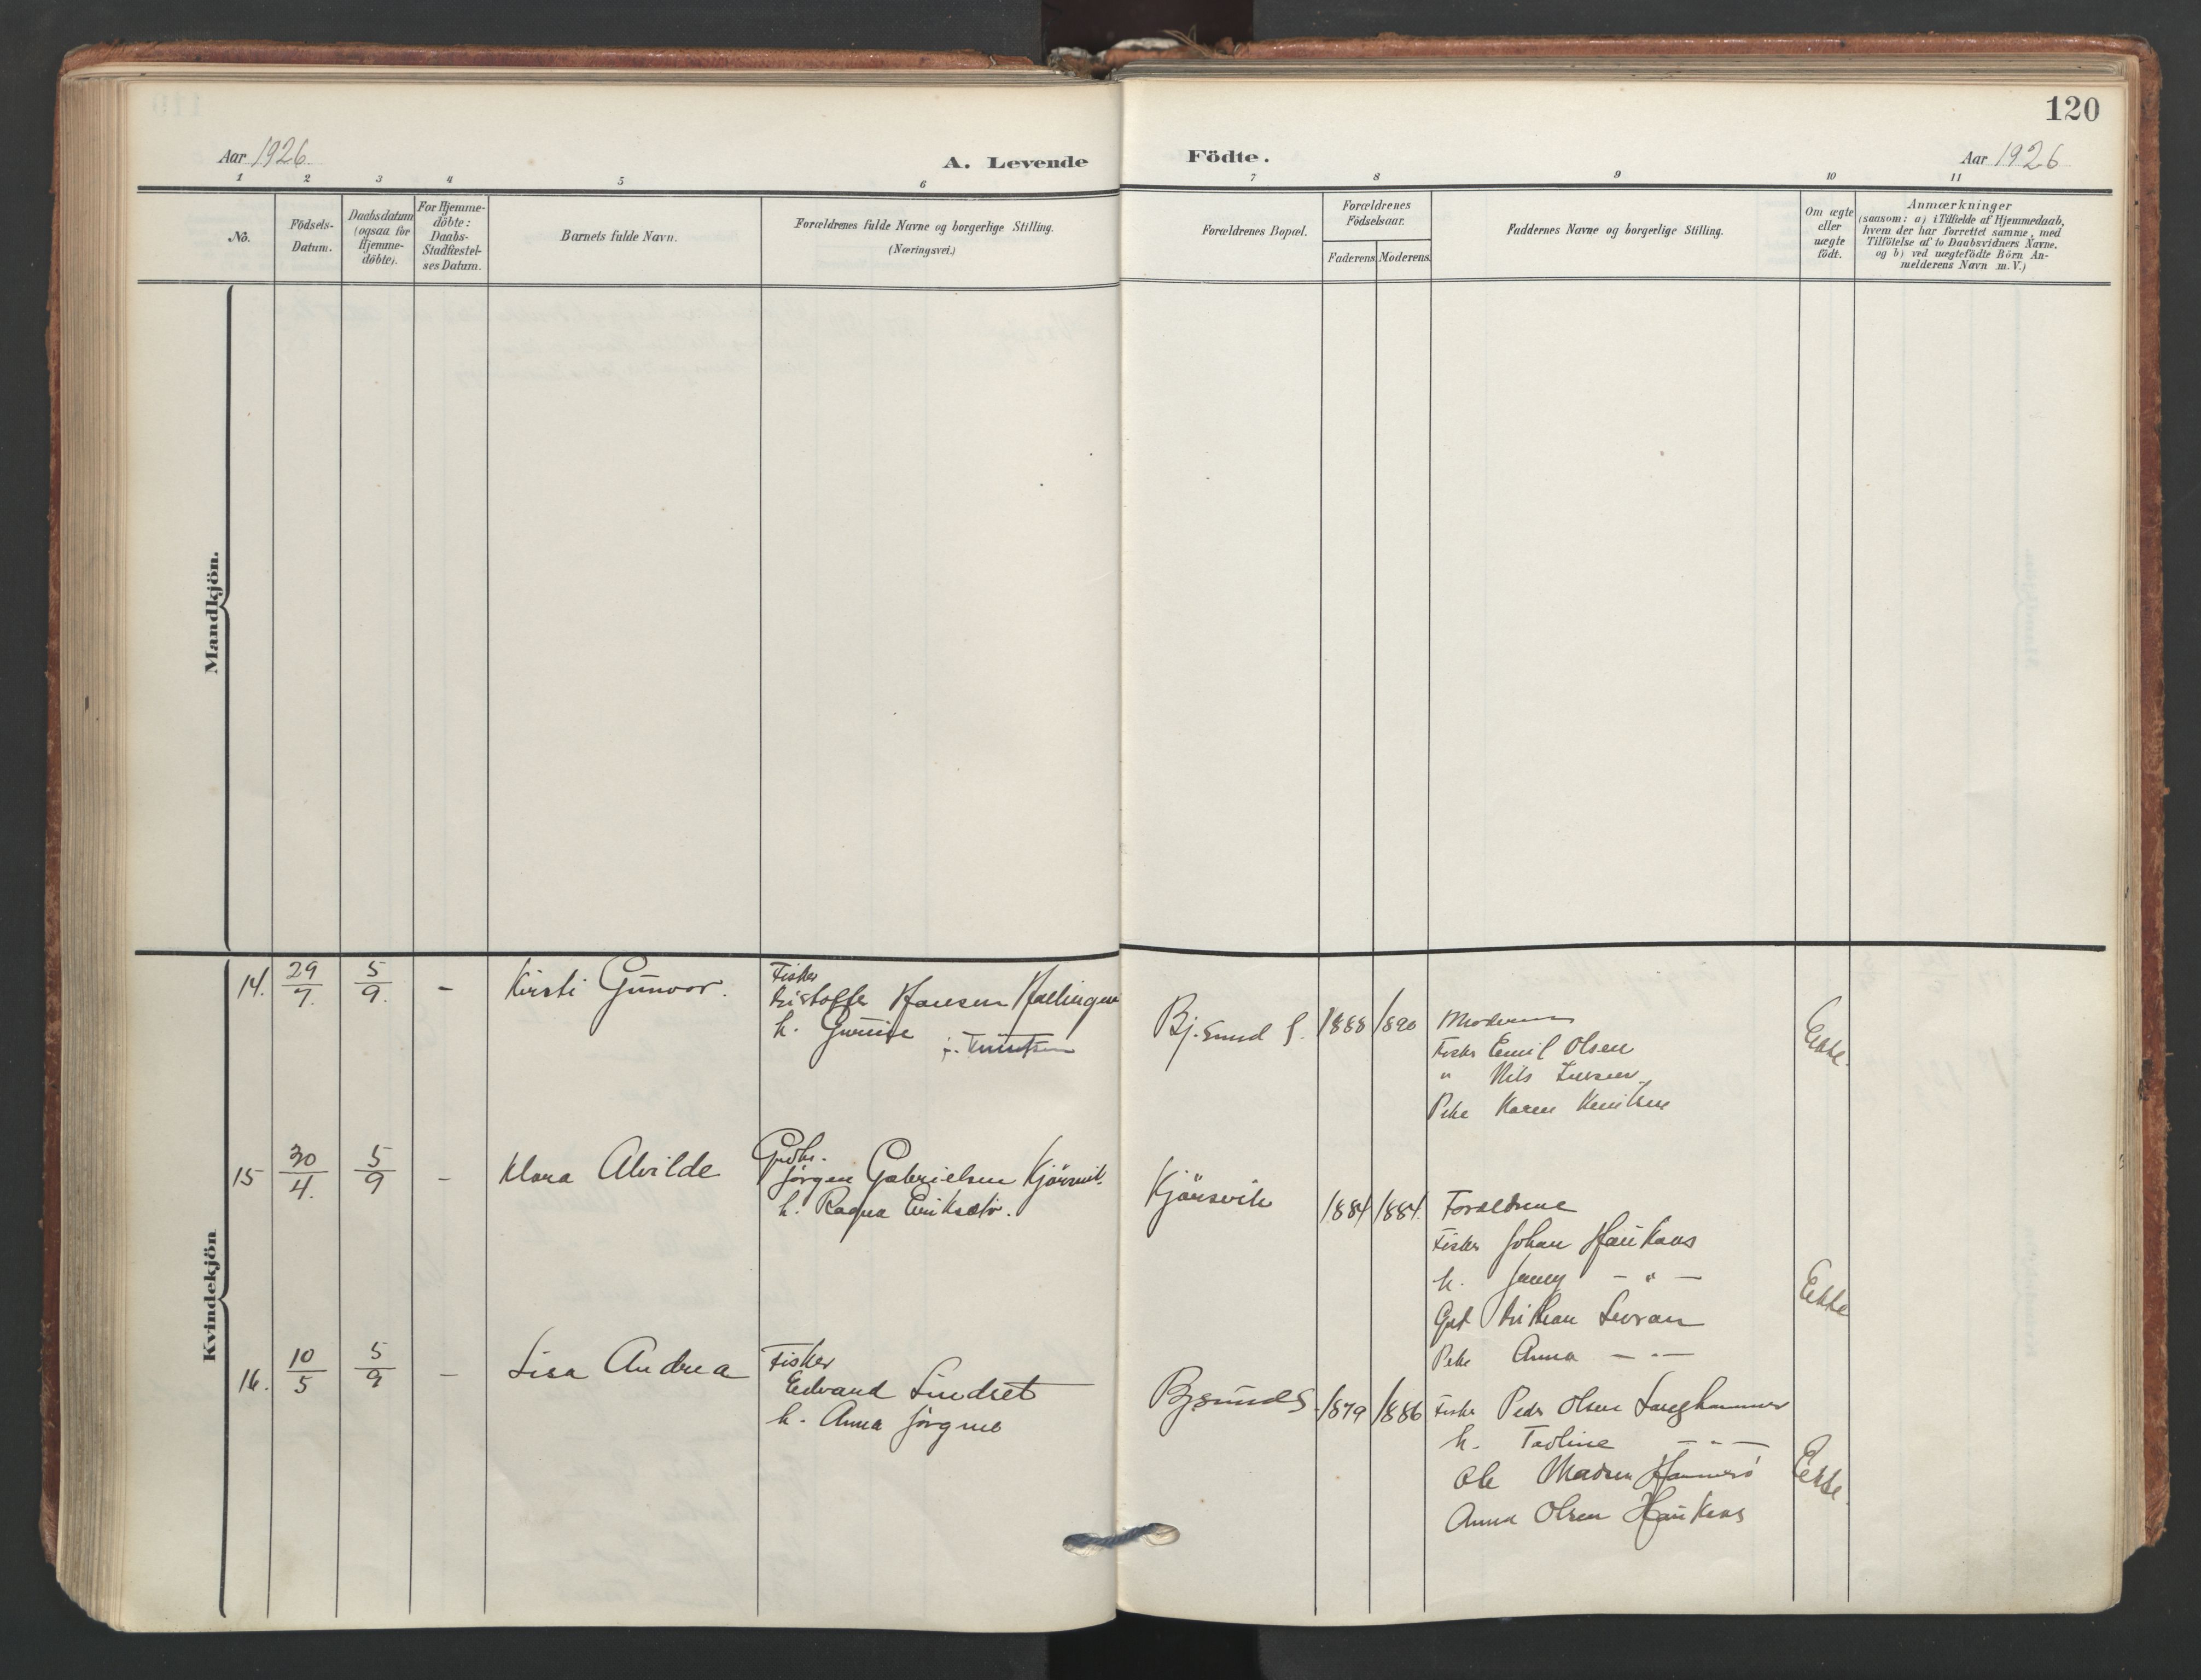 120
Aar 1926.
A. Levende
Födte.
Aar 1926
1 2 3 4 5 6 7 8 9 10 11
No.
Födsels-
Datum.
Daabsdatum
(ogsaa for
Hjemme-
döbte).
For Hjemme-
döbte:
Daabs-
Stadfæstel-
ses Datum.
Barnets fulde Navn.
Forældrenes fulde Navne og borgerlige Stilling.
(Næringsvei.)
Forældrenes Bopæl.
Forældrenes
Födselsaar.
Faderens. Moderens.
Faddernes Navne og borgerlige Stilling.
Om ægte
eller
uægte
födt.
Anmærkninger
(saasom: a) i Tilfælde af Hjemmedaab,
hvem der har forrettet samme, med
Tilföielse af to Daabsvidners Navne,
og b) ved uægtefödte Börn An-
melderens Navn m. V.)
Mandkjön.
Kvindekjön
14. 29/7. 5/9. - Kirsti Gunvor.
Fisker
Kristoffer Hansen
h.
Bj.sund S. 1888 1890
Moderen
Fisker Emil Olsen
" Nils
Pike Karen Knutsen
Ekte.
15 30/4. 5/9 - Klara Alvilde
Gudbr.
Jørgen Gabrielsen Kjörsvik.
h. Ragna Eriksdtr.
Kjörsvik 1884 1884.
Foreldrene
Fisker Johan Haukaas
h. Jenny - " -
Gut Kristian
Pike Anna - " -
Ekte
16. 10/5 5/9 - Lisa Andrea
Fisker
Edvard Lindset
h. Anna Jørgine
Bjsund S. 1879 1886
Fisker Peder Olsen Langhammer
h. - " -
Ole Madsen Hammerö
Anna Olsen Haukaas
Ekte.